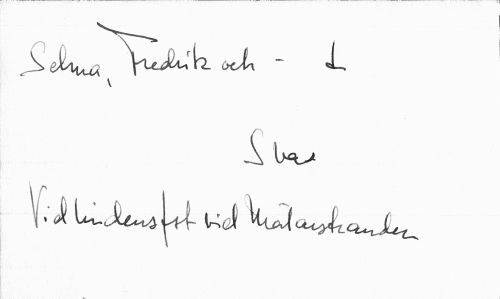 Selma, Fredrik och -
Svar
Vid lindens fot vid Mälarstranden